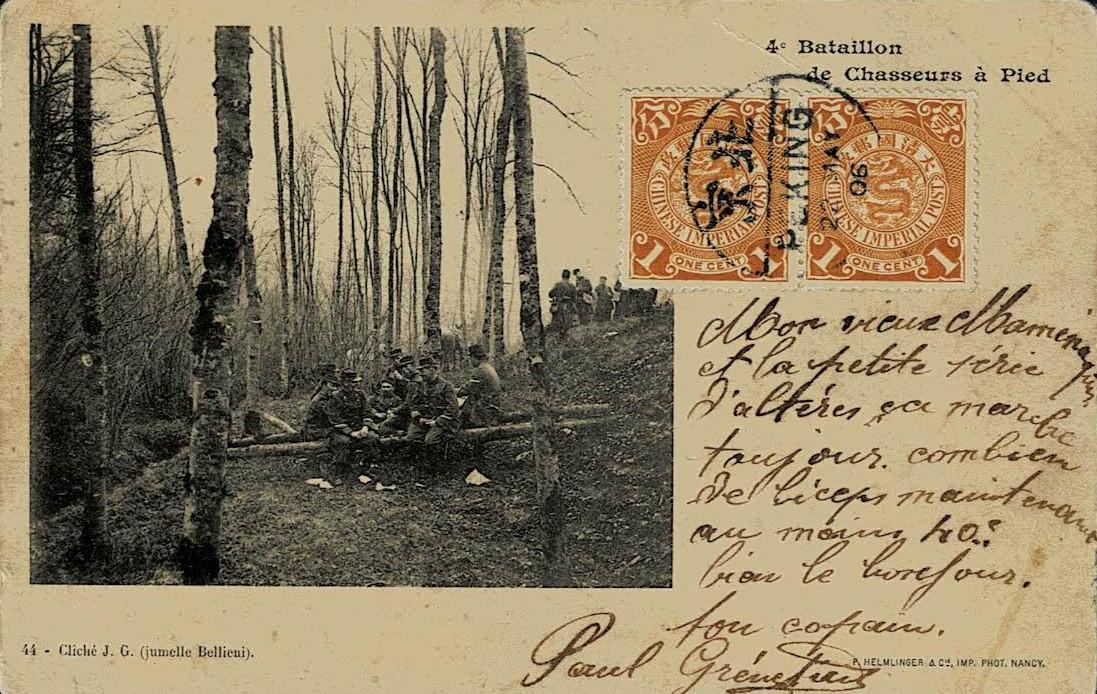 4e Bataillon
de Chasseurs à Pied
大清國郵政
CHINESE IMPERIAL POST
1 ONE CENT 1
大清國郵政
CHINESE IMPERIAL POST
1 ONE CENT 1
北京
PEKING
MAY
06
Mon vieux
et la petite série
d'altères ça marche
toujour. combien
de biceps maintenant
au moins 40c
bien le bonjour.
ton copain.
Paul
44 - Cliché J. G. (jumelle Bellieni).
P. HELMLINGER & Cie, IMP. PHOT. NANCY.